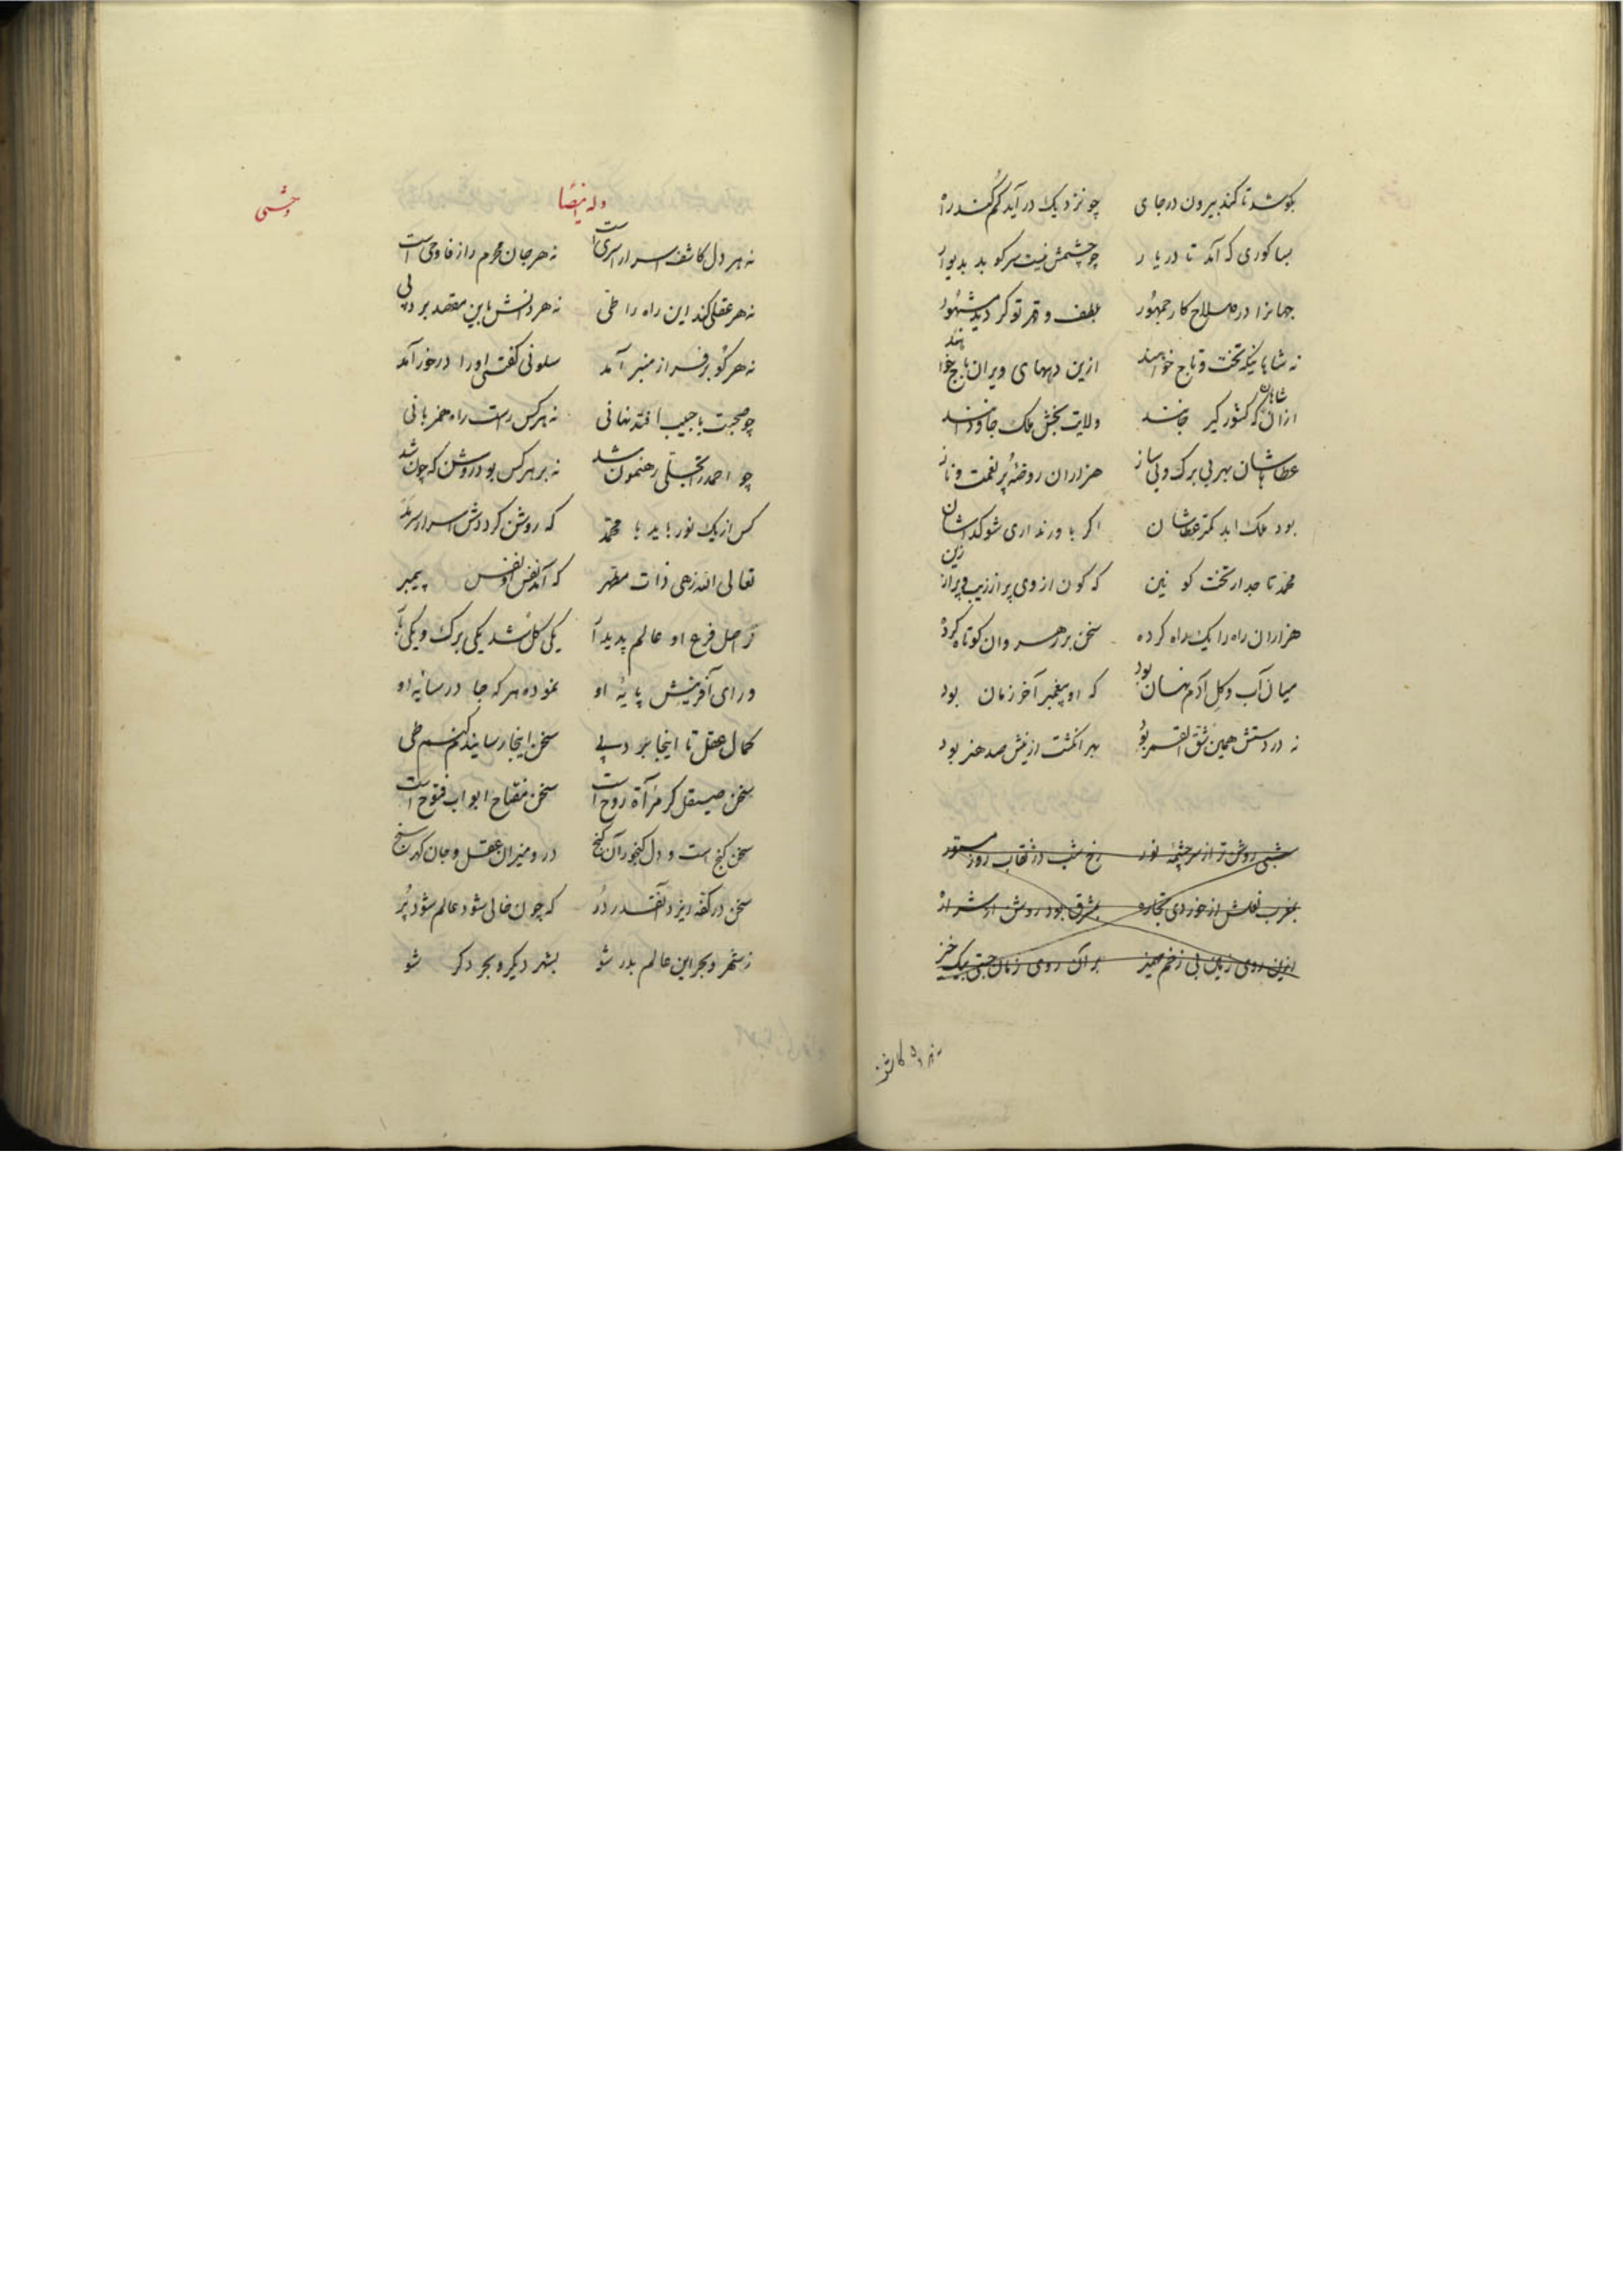 بکوشد تا کند بیرون در جای چو نزدیک در آید کم کند راه
بسا کوری که آمد تا در یار چو چشمش نیست سر کوبد بدیوار
جهانرا در صلاح کار جمهور بلطف و قهر تو کردید مشهور
نه شاهانیکه تخت و تاج خواهند ازین دههای ویران باج خواهند
ازان شاهان که کشور گیر جانند ولایت بخش ملک جاودانند
عطاهاشان بهر بی برک و بی ساز هزاران روضهٔ پر نعمت و ناز
بود ملک ابد کمتر عطاشان اکر باور نداری شو کداشان
محمد تاجدار تخت کونین که کون از وی پر از زیب و پر از زین
هزاران راه را یک راه کرده سخن بر رهروان کوتاه کرده
میان آب و کل آدم نهان بود که او پیغمبر آخر زمان بود
نه در دستش همین شق القمر بود بهر انکشت ازینش صد هنر بود
شبی روشن تر از سرچشمه نور رخ شب در نقاب روز مستور
نه هر دل کا
وله ایضا
وحشی
نه هر دل کاشف اسرار اسری است نه هر جان محرم راز فاوحی است
نه هر عقلی کند این راه را طی نه هر دانش باین مقصد برد پی
نه هر کو بر فراز منبر آمد سلونی کفتن او را در خور آمد
چو صحبت با حبیب افتد نهانی نه هر کس راست راه همزبانی
چو احمد را تجلی رهنمون شد نه بر هر کس بود روشن که چون شد
کس از یک نور باید با محمد که روشن کرددش اسرار سرمد
تعالی الله زهی ذات مطهر که آمد نفس او نفس پیمبر
ز اصل فرع او عالم پدید آ یکی کل شد یکی برک و یکی
ورای آفرینش پایهٔ او نموده هر که جا در سایهٔ او
کمال عقل تا اینجا برد پی سخن اینجا رسانیدم کنم طی
سخن صیقل کر مرآة روح است سخن مفتاح ابواب فتوح است
سخن کنج است و دل کنجور آن کنج درو میزان عقل و جان کهر سنج
سخن در کفه ریزد آنقدر در که چون خالی شود عالم شود پر
ز شهر و بحر این عالم بدر شو بشهر دیکر و بحر دکر شو